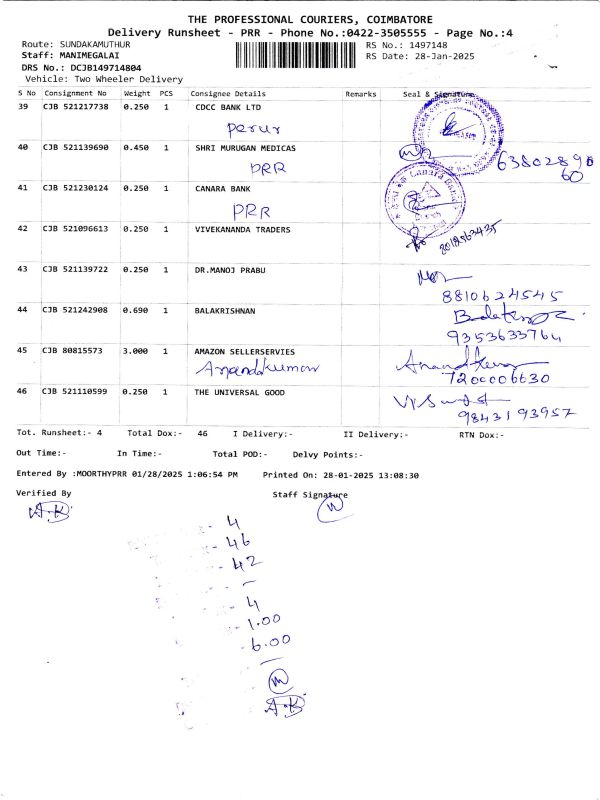 THE PROFESSIONAL COURIERS, COIMBATORE
Delivery Runsheet - PRR - Phone No.:0422-3505555 - Page No.:4
Route: SUNDAKAMUTHUR RS No.: 1497148
Staff: MANIMEGALAI RS Date: 28-Jan-2025
DRS No.: DCJB149714804
Vehicle: Two Wheeler Delivery
S No Consignment No Weight PCS Consignee Details Remarks Seal & Signature
39 CJB 521217738 0.250 1 CDCC BANK LTD
Perur
40 CJB 521139690 0.450 1 SHRI MURUGAN MEDICAS
PRR
63802890
60
41 CJB 521230124 0.250 1 CANARA BANK
PRR
Canara Bank
42 CJB 521096613 0.250 1 VIVEKANANDA TRADERS
43 CJB 521139722 0.250 1 DR.MANOJ PRABU
8810624545
44 CJB 521242908 0.690 1 BALAKRISHNAN
9353633764
45 CJB 80815573 3.000 1 AMAZON SELLERSERVIES
Anandakumar
7200006630
46 CJB 521110599 0.250 1 THE UNIVERSAL GOOD
9843193957
Tot. Runsheet:- 4 Total Dox:- 46 I Delivery:- II Delivery:- RTN Dox:-
Out Time:- In Time:- Total POD:- Delvy Points:-
Entered By :MOORTHYPRR 01/28/2025 1:06:54 PM Printed On: 28-01-2025 13:08:30
Verified By Staff Signature
A.B.
- 4
- 46
- 42
-
- 4
- 1.00
- 6.00
A.B.